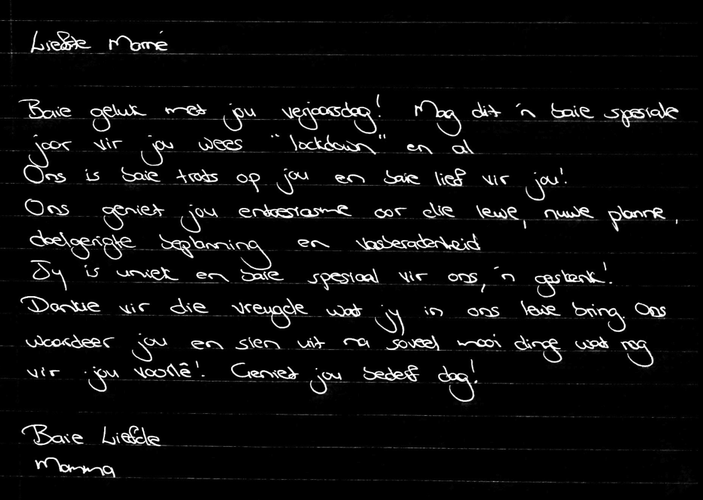 Liefste Morné
Baie geluk met jou verjaarsdag! Mag dit 'n baie spesiale
jaar vir jou wees "lockdown" en al
Ons is baie trots op jou en baie lief vir jou!
Ons geniet jou entoesiasme oor die lewe, nuwe planne,
doelgerigte beplanning en vasberadenheid
Jy is uniek en baie spesiaal vir ons, 'n geskenk!
Dankie vir die vreugde wat jy in ons lewe bring. Ons
waardeer jou en sien uit na soveel mooi dinge wat nog
vir jou voorlê! Geniet jou bederf dag!
Baie Liefde
Mamma